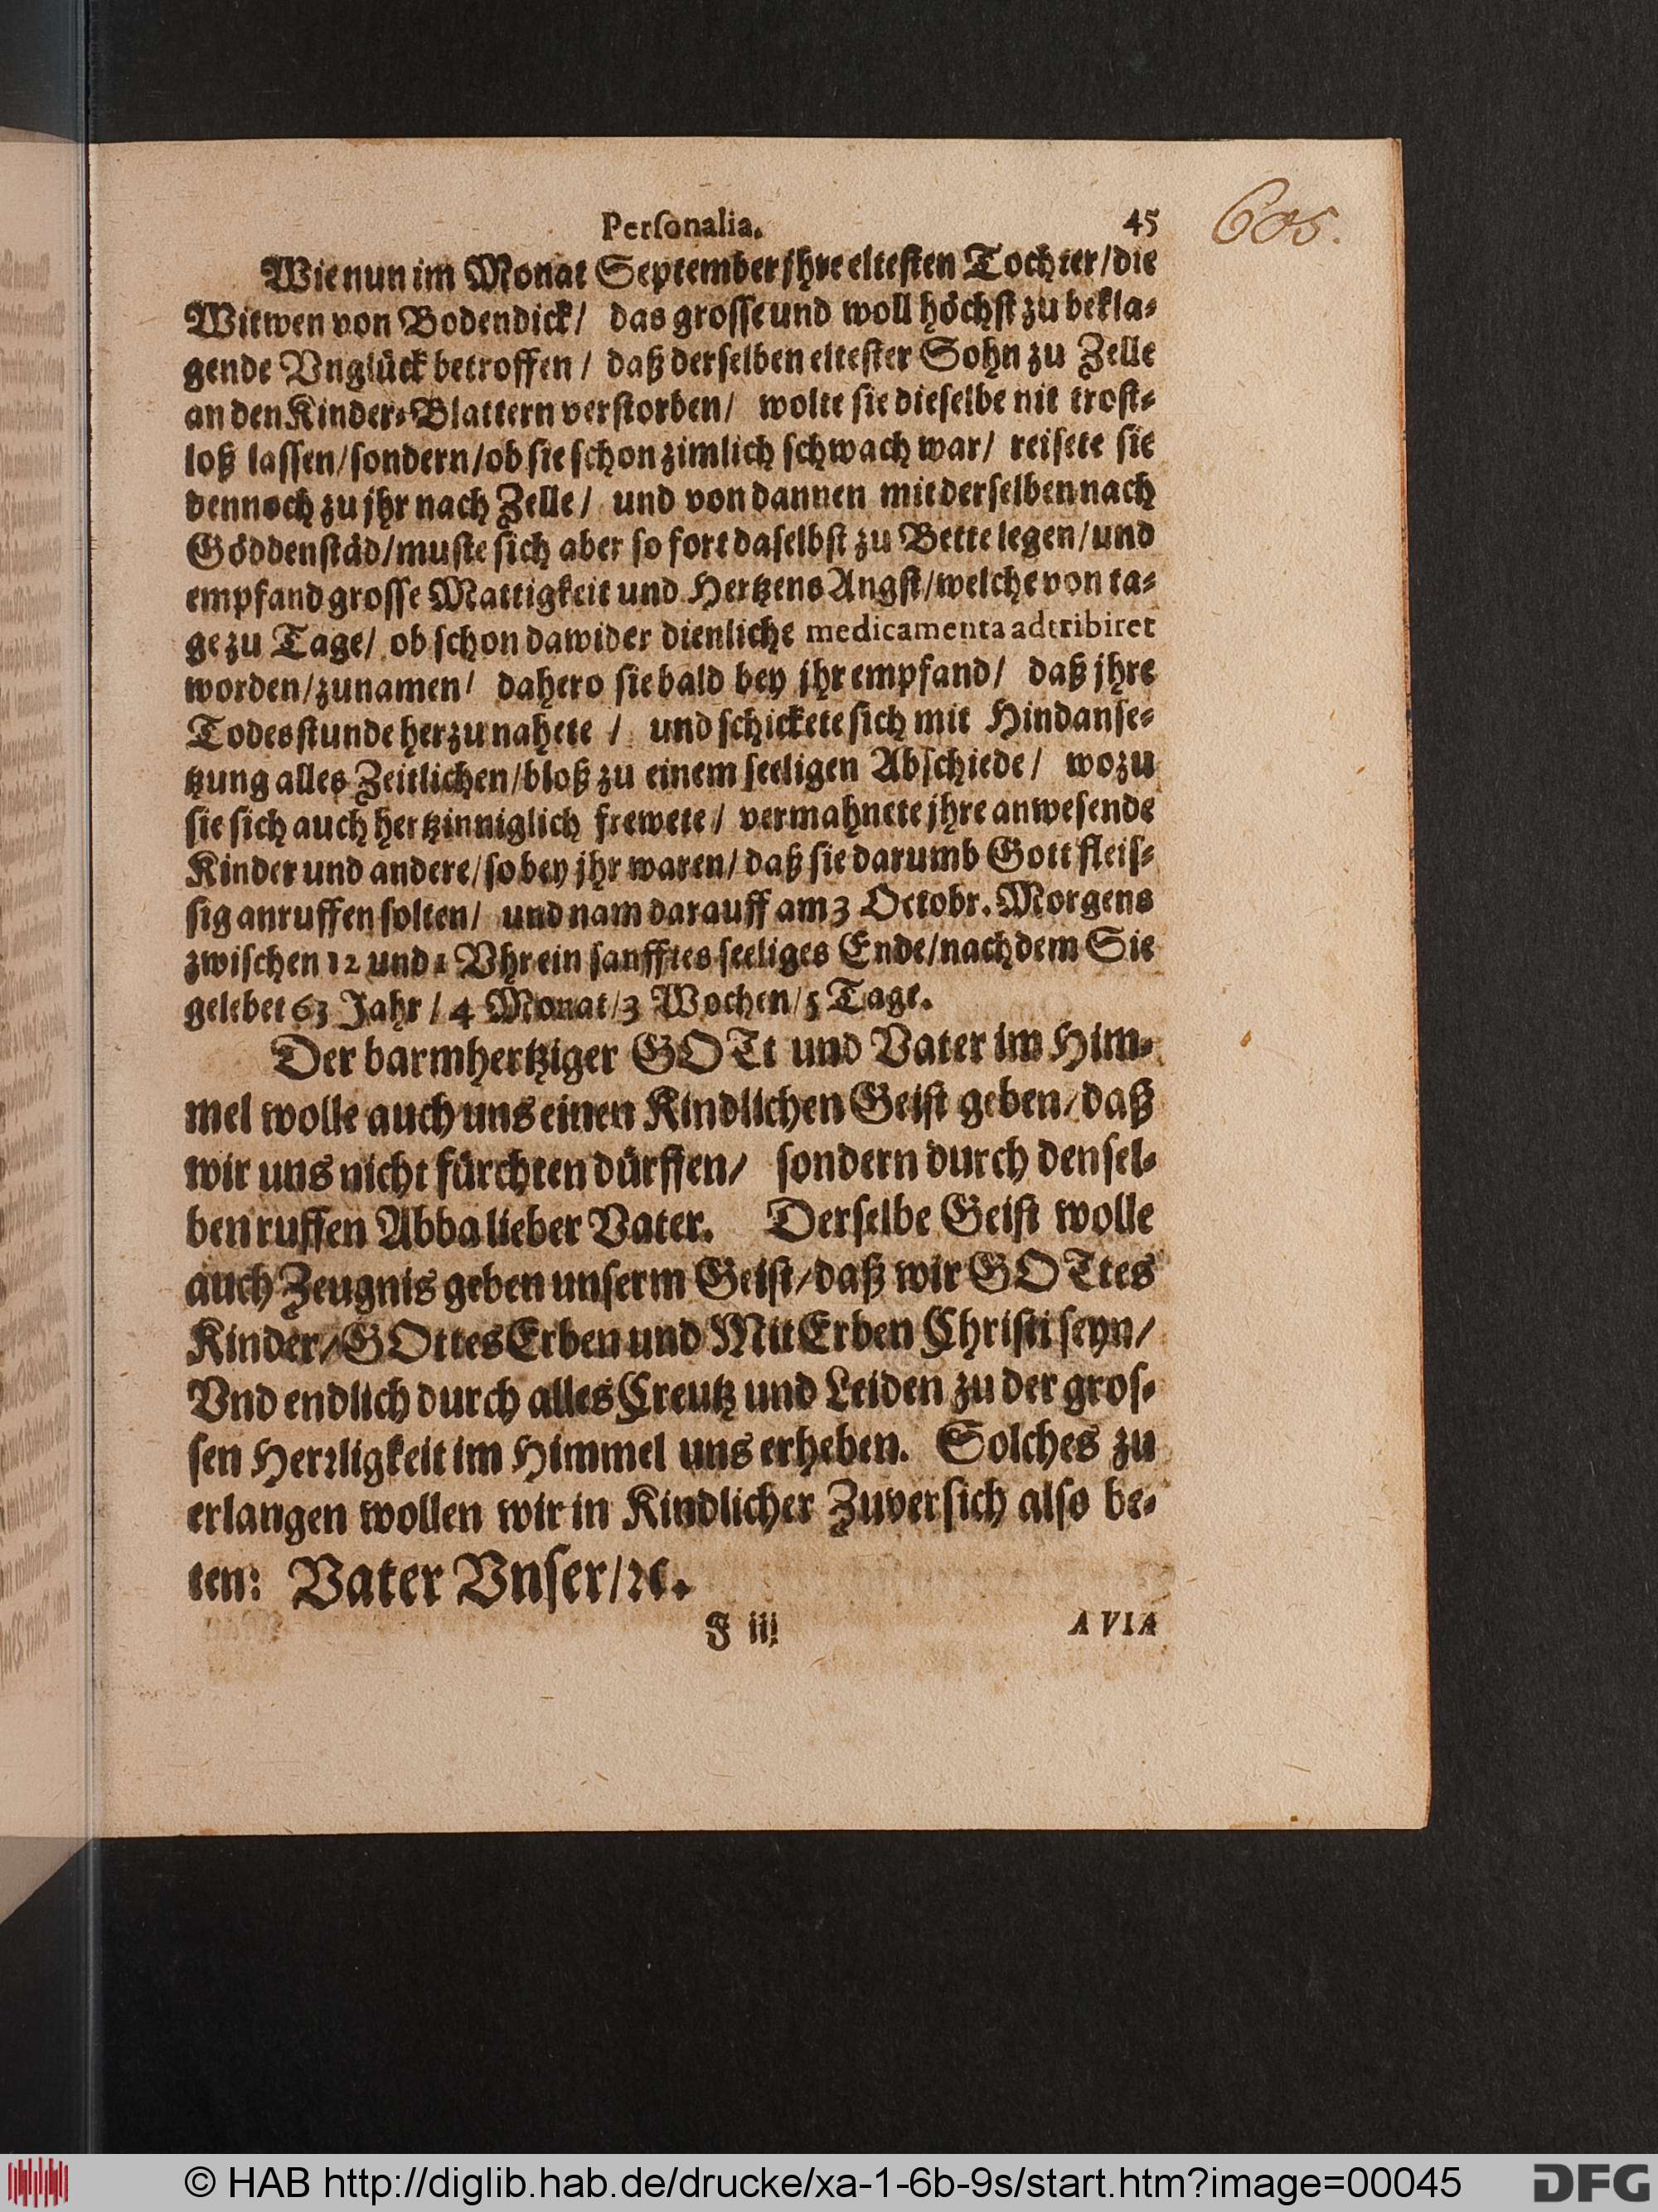 Perſonalia. 45
605.
Wie nun im Monat September jhre elteſten Tochter/die
Witwen von Bodendick/ das groſſe und woll höchſt zu bekla⸗
gende Vnglück betroffen/ daß derſelben elteſter Sohn zu Zelle
an den Kinder⸗Blattern verſtorben/ wolte ſie dieſelbe nit troſt⸗
loß laſſen/ſondern/ob ſie ſchon zimlich ſchwach war/ reiſete ſie
dennoch zu jhr nach Zelle/ und von dannen mit derſelben nach
Göddenſtäd/muſte ſich aber ſo fort daſelbſt zu Bette legen/und
empfand groſſe Mattigkeit und Hertzens Angſt/welche von ta⸗
ge zu Tage/ ob ſchon dawider dienliche medicamenta adtribiret
worden/zunamen/ dahero ſie bald bey jhr empfand/ daß jhre
Todesſtunde herzu nahete / und ſchickete ſich mit Hindanſe⸗
tzung alles Zeitlichen/bloß zu einem ſeeligen Abſchiede/ wozu
ſie ſich auch hertzinniglich frewete/ vermahnete jhre anweſende
Kinder und andere/ſo bey jhr waren/daß ſie darumb Gott fleiſ⸗
ſig anruffen ſolten/ und nam darauff am 3 Octobr. Morgens
zwiſchen 12 und 1 Vhr ein ſanfftes ſeeliges Ende/nachdem Sie
gelebet 63 Jahr/4 Monat/3 Wochen/5 Tage.
Der barmhertziger GOTt und Vater im Him⸗
mel wolle auch uns einen Kindlichen Geiſt geben/daß
wir uns nicht fürchten dürffen/ ſondern durch denſel⸗
ben ruffen Abba lieber Vater. Derſelbe Geiſt wolle
auch Zeugnis geben unſerm Geiſt/daß wir GOTtes
Kinder/GOttes Erben und Mit Erben Chriſti ſeyn/
Vnd endlich durch alles Creutz und Leiden zu der groſ⸗
ſen Herꝛligkeit im Himmel uns erheben. Solches zu
erlangen wollen wir in Kindlicher Zuverſich alſo be⸗
ten: Vater Vnſer/ꝛc.
F iij AVIA
© HAB http://diglib.hab.de/drucke/xa-1-6b-9s/start.htm?image=00045 DFG